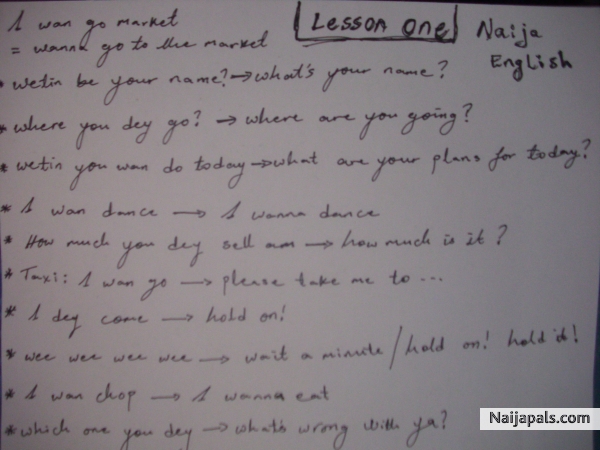 I wan go market
= wanna go to the market
LESSON One
Naija
English
* wetin be your name? → what's your name?
* where you dey go? → where are you going?
* wetin you wan do today → what are your plans for today?
* I wan dance → I wanna dance
* How much you dey sell am → how much is it?
* Taxi: I wan go → please take me to ...
* I dey come → hold on!
* wee wee wee wee → wait a minute / hold on! hold it!
* I wan chop → I wanna eat
* which one you dey → what's wrong with ya?
Naijapals.com